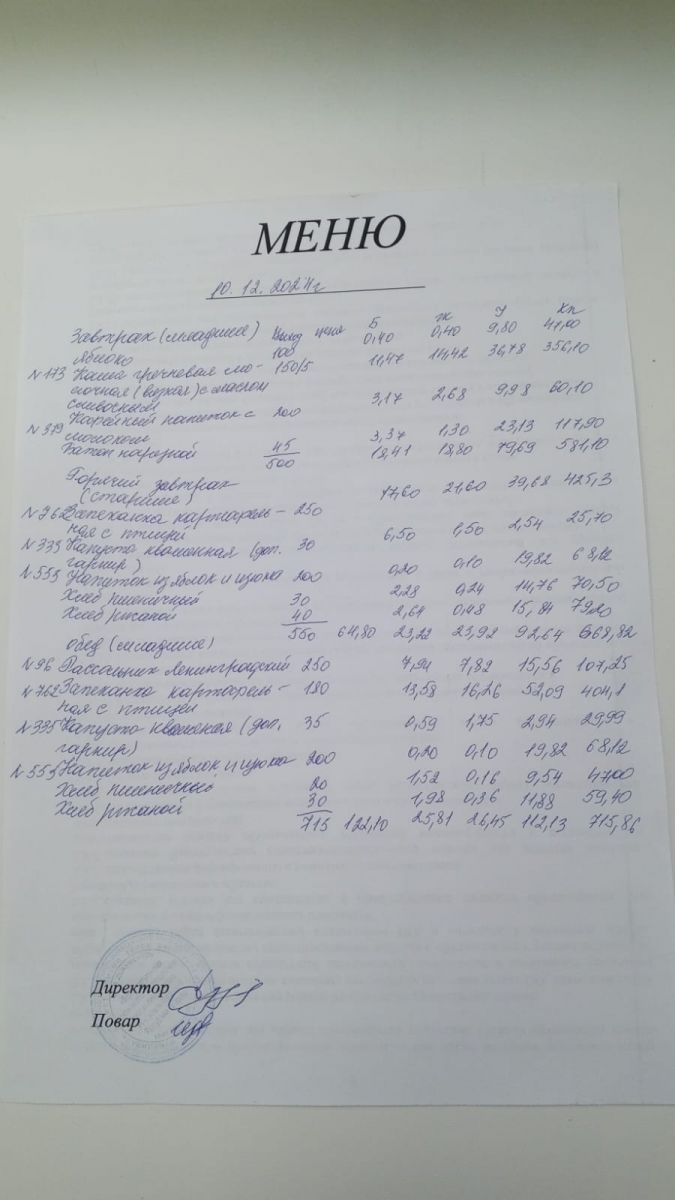 МЕНЮ
10.12.2024г
Завтрак (младшие) Выход цена Б Ж У Кк
Яблоко 100 0,40 0,40 9,80 47,00
№173 Каша гречневая мо- 150/5 11,47 14,42 36,78 356,10
лочная (вязкая) с маслом
сливочным
№379 Кофейный напиток с 200 3,17 2,68 9,98 60,10
молоком
Батон нарезной 45 3,37 1,30 23,13 117,90
500 18,41 18,80 79,69 581,10
Горячий завтрак
(старшие)
№762 Запеканка картофель- 250 17,60 21,60 39,68 425,3
ная с птицей
№335 Капуста квашенная (доп. 30 6,50 1,50 2,54 25,70
гарнир)
№555 Напиток из яблок и изюма 200 0,20 0,10 19,82 68,12
Хлеб пшеничный 30 2,28 0,24 14,76 70,50
Хлеб ржаной 40 2,64 0,48 15,84 79,20
550 64,80 23,22 23,92 92,64 668,82
Обед (младшие)
№96 Рассольник Ленинградский 250 7,94 7,82 15,56 107,25
№762 Запеканка картофель- 180 13,58 16,26 52,09 404,1
ная с птицей
№335 Капуста квашеная (доп. 35 0,59 1,75 2,94 29,99
гарнир)
№555 Напиток из яблок и изюма 200 0,20 0,10 19,82 68,12
Хлеб пшеничный 20 1,52 0,16 9,54 47,00
Хлеб ржаной 30 1,98 0,36 11,88 59,40
715 122,10 25,81 26,45 112,13 715,86
Директор
Повар